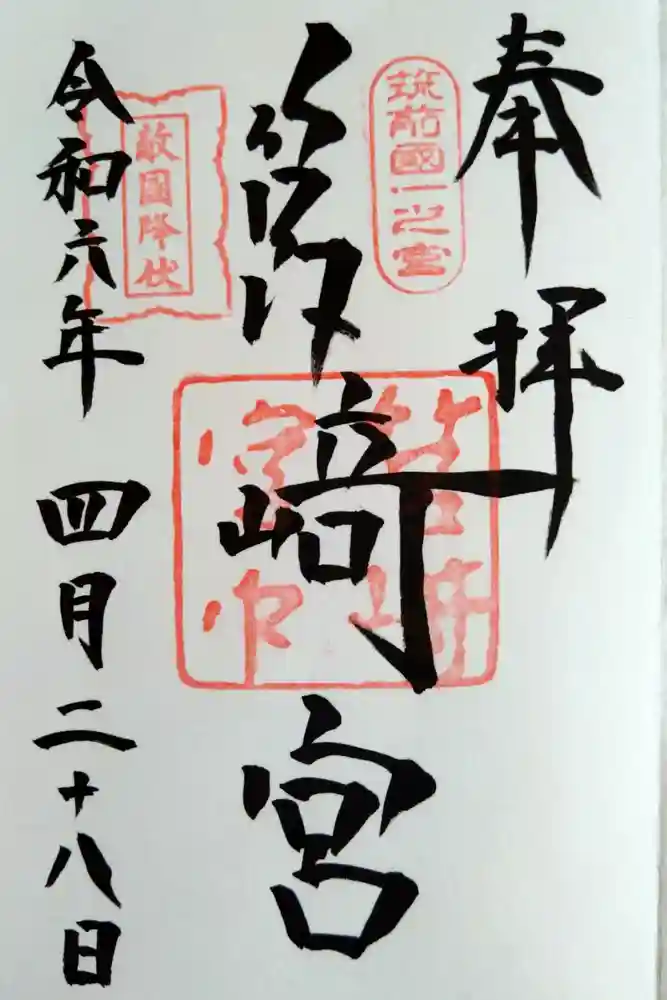 奉拝
筑前國一之宮
筥崎宮
敵國降伏
令和六年 四月二十八日